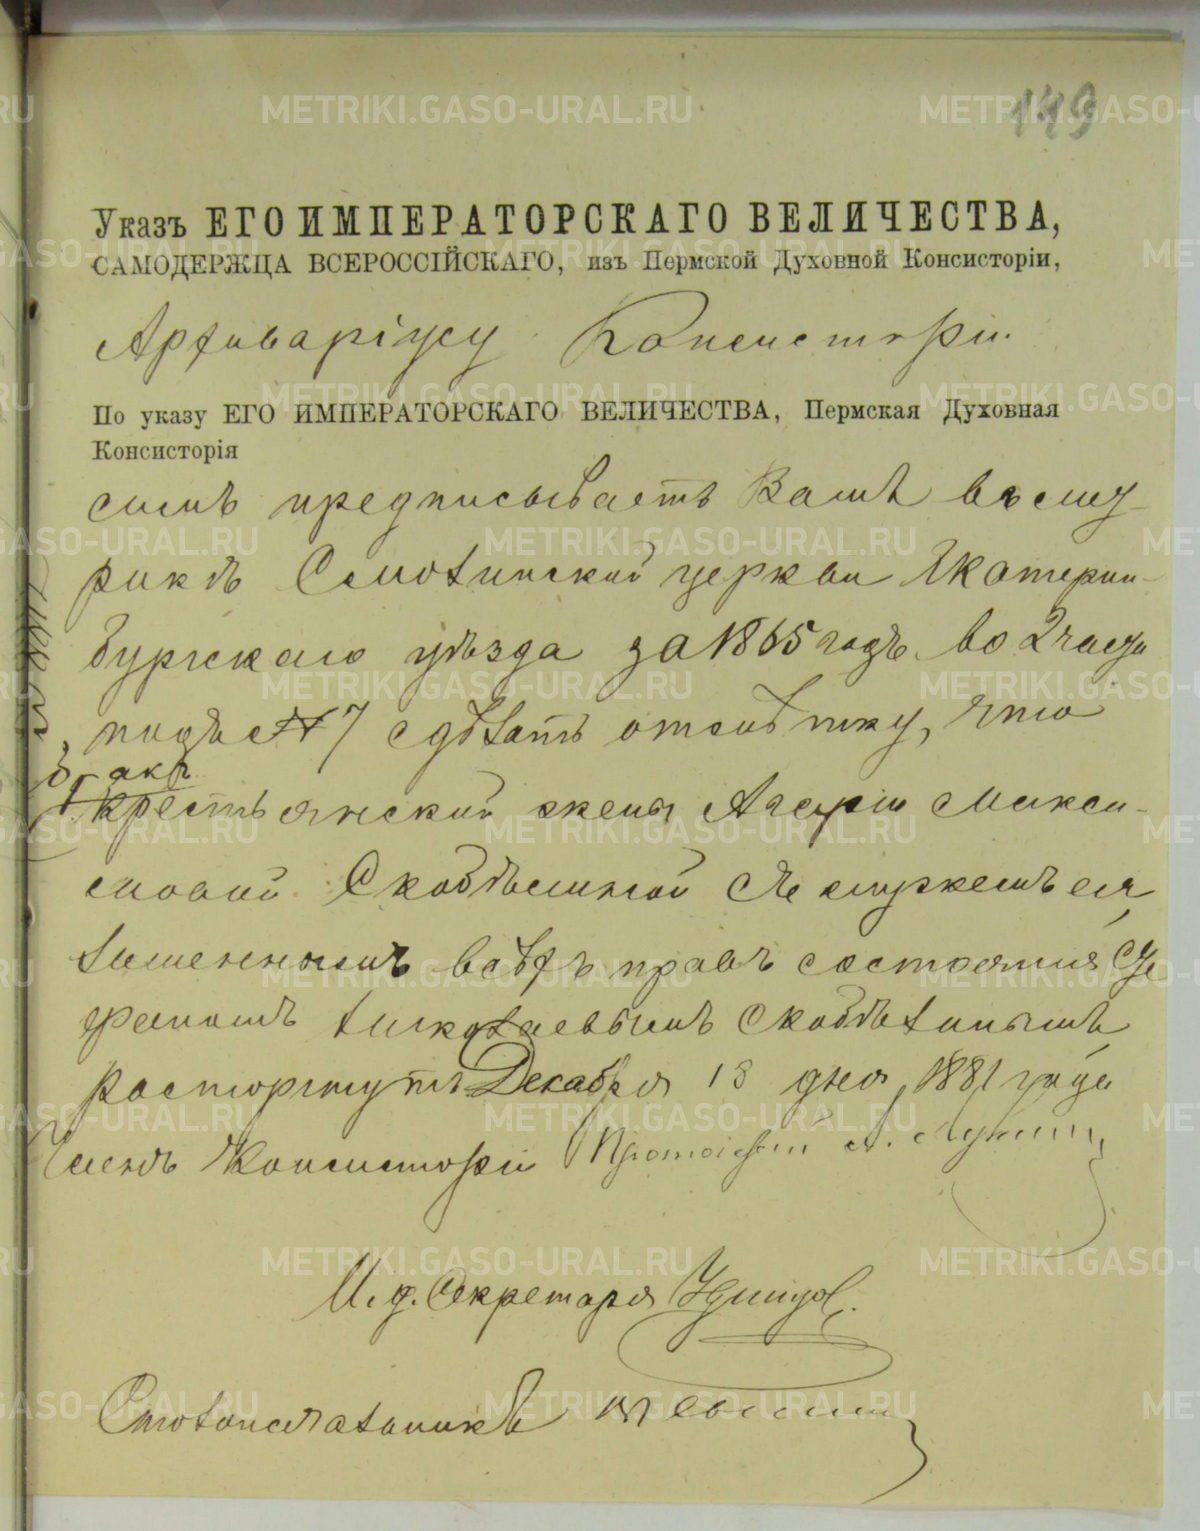 149
Указъ ЕГО ИМПЕРАТОРСКАГО ВЕЛИЧЕСТВА,
САМОДЕРЖЦА ВСЕРОССІЙСКАГО, изъ Пермской Духовной Консисторіи,
Архиваріусу Консисторіи.
По указу ЕГО ИМПЕРАТОРСКАГО ВЕЛИЧЕСТВА, Пермская Духовная
Консисторія
симъ предписываетъ Вамъ въ мет
рикѣ Смолинской церкви Екатерин-
бургскаго уѣзда за 1865 годъ во 2 части
подъ № 7 сдѣлать отмѣтку, что
бракъ
крестьянской жены Агаріи Макси-
мовой Скобѣлиной съ мужемъ ея,
лишеннымъ всѣхъ правъ состоянія Се
фаномъ Николаевымъ Скобѣлинымъ,
расторгнутъ Декабря 18 дня, 1881 года
Членъ Консисторіи Протоіерей А. Лукинъ
И. д. Секретаря
Столоначальникъ
METRIKI.GASO-URAL.RU